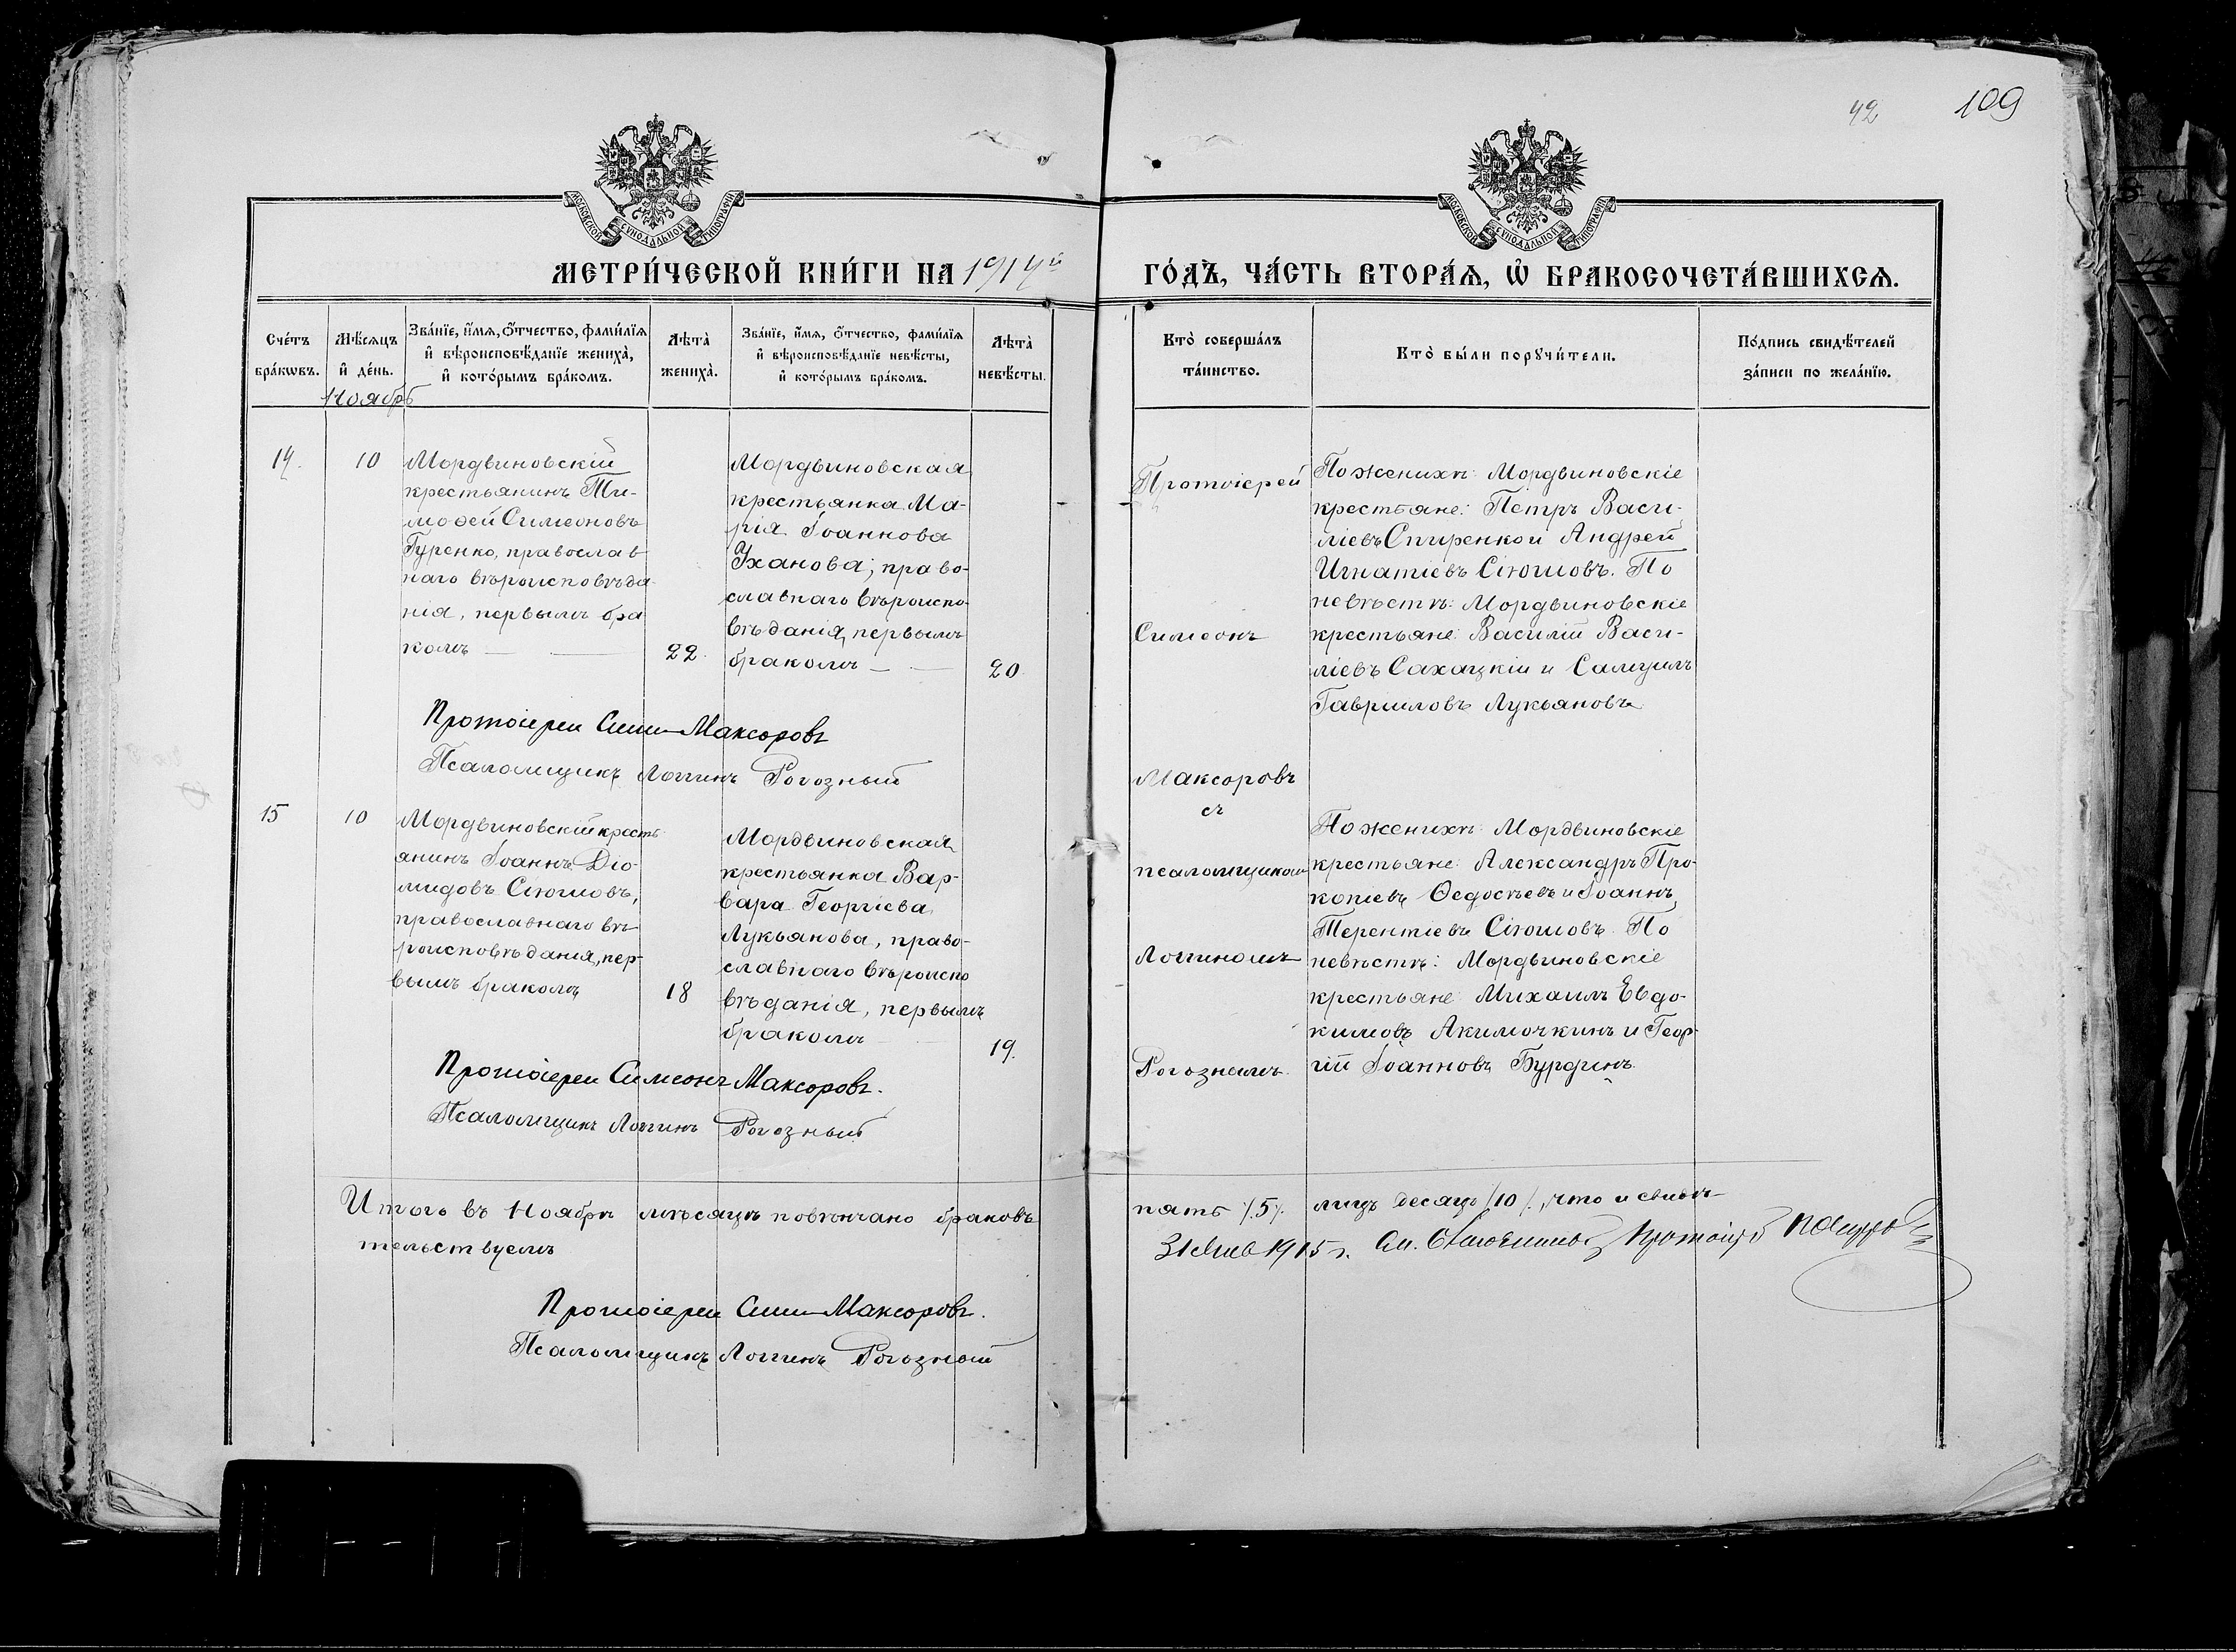 42
109
МОСКОВСКОЙ СУНОДАЛЬНОЙ ТИПОГРАФІИ
МОСКОВСКОЙ СУНОДАЛЬНОЙ ТИПОГРАФІИ
МЕТРИ́ЧЕСКОЙ КНИ́ГИ НА 1914й
ГО́ДЪ, ЧА́СТЬ ВТОРА́Ѧ, Ѡ БРАКОСОЧЕТА́ВШИХСѦ.
Сче́тъ
бра́кѡвъ.
Мѣ́сѧцъ
и҆ де́нь.
Ноябрь
Зва́нїе, и҆́мѧ, ѻ҆́тчество, фами́лїѧ
и҆ вѣроисповѣ́данїе жениха̀,
и҆ кото́рымъ бра́комъ.
Лѣта̀
жениха̀.
Зва́нїе, и҆́мѧ, ѻ҆́тчество, фами́лїѧ
и҆ вѣроисповѣ́данїе невѣ́сты,
и҆ кото́рымъ бра́комъ.
Лѣта̀
невѣ́сты.
Кто̀ соверша́лъ
та́инство.
Кто̀ бы́ли порꙋчи́тели.
По́дпись свидѣ́телей
за́писи по жела́нїю.
14.
10
Мордвиновскій
крестьянинъ Ти-
моѳей Симеоновъ
Гуренко, православ
наго вѣроисповѣда-
нія, первымъ бра
комъ
22.
Мордвиновская
крестьянка Ма-
рія Іоаннова
Уханова, право-
славнаго вѣроиспо-
вѣданія, первымъ
бракомъ
20
Протоіерей
Симеонъ
Максоровъ
съ
псаломщикомъ
Логгиномъ
Рогознымъ.
По женихѣ: Мордвиновскіе
крестьяне: Петръ Васи-
ліевъ Спиренко и Андрей
Игнатіевъ Сіюшовъ. По
невѣстѣ: Мордвиновскіе
крестьяне: Василій Васи-
ліевъ Сахацкій и Самуилъ
Гавриловъ Лукьяновъ
Протоіерей Симеонъ Максоровъ
Псаломщикъ Логгинъ Рогозный
15
10
Мордвиновскій кресть-
янинъ Іоаннъ Діо-
мидовъ Сіюшовъ,
православнаго вѣ-
роисповѣданія, пер-
вымъ бракомъ
18
Мордвиновская
крестьянка Вар-
вара Георгіева
Лукьянова, право-
славнаго вѣроиспо
вѣданія, первымъ
бракомъ
19.
По женихѣ: Мордвиновскіе
крестьяне: Александръ Про-
копіевъ Ѳедосѣевъ и Іоаннъ
Терентіевъ Сіюшовъ. По
невѣстѣ: Мордвиновскіе
крестьяне: Михаилъ Евдо-
кимовъ Акимочкинъ и Геор-
гій Іоанновъ Бурдинъ.
Протоіерей Симеонъ Максоровъ.
Псаломщикъ Логгинъ Рогозный
Итого въ Ноябрѣ мѣсяцѣ повѣнчано браковъ
пять /5/. лицъ десять /10/., что и свидѣ-
тельствуемъ
1915 г. Протоіерей
Протоіерей Симеонъ Максоровъ.
Псаломщикъ Логгинъ Рогозный